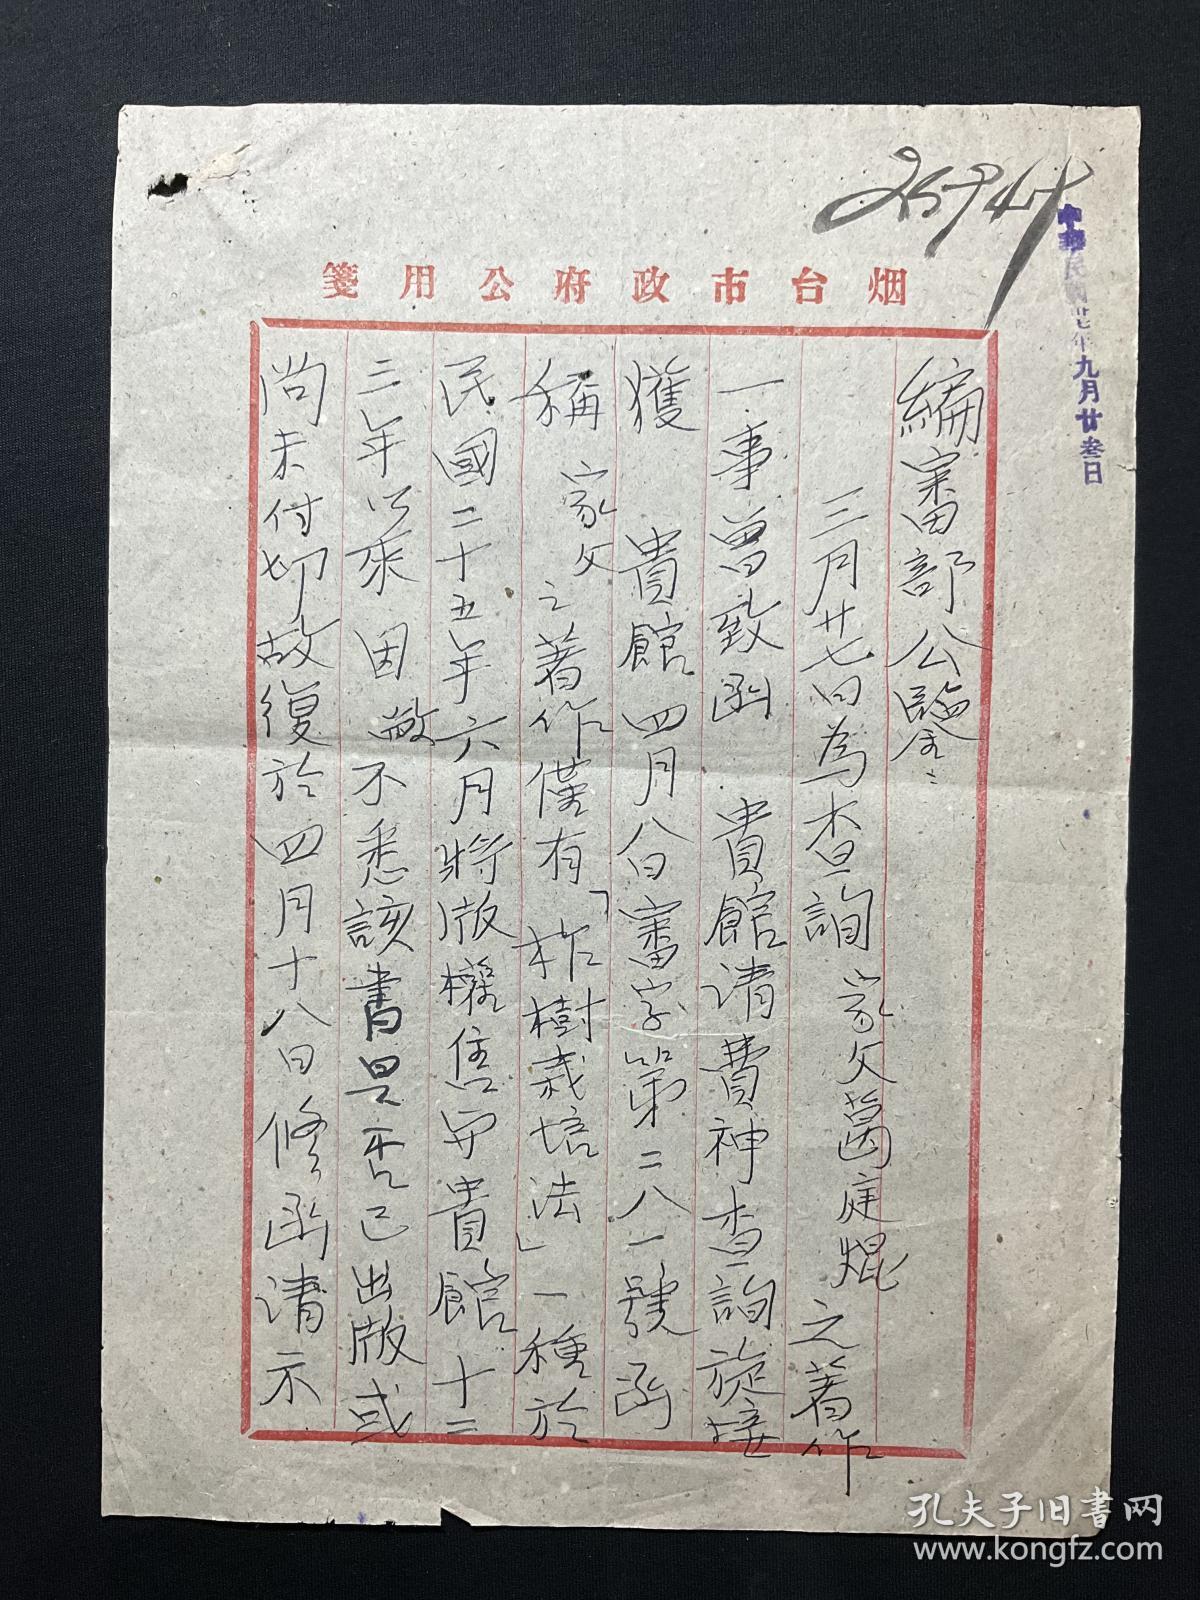 烟台市政府公用箋
中華民國卅七年九月廿叁日
編審部公鑒：
三月廿七日為查詢家父蒝庭焜之著作
一事曾致函貴館请費神查詢旋接
獲貴館四月八日審字第二八一號函
稱家父之著作僅有「柞樹栽培法」一種於
民國二十五年六月將版權售與貴館十二
三年以來因敝不悉該書是否已出版或
尚未付印故復於四月十八日修函请示
孔夫子旧书网
www.kongfz.com